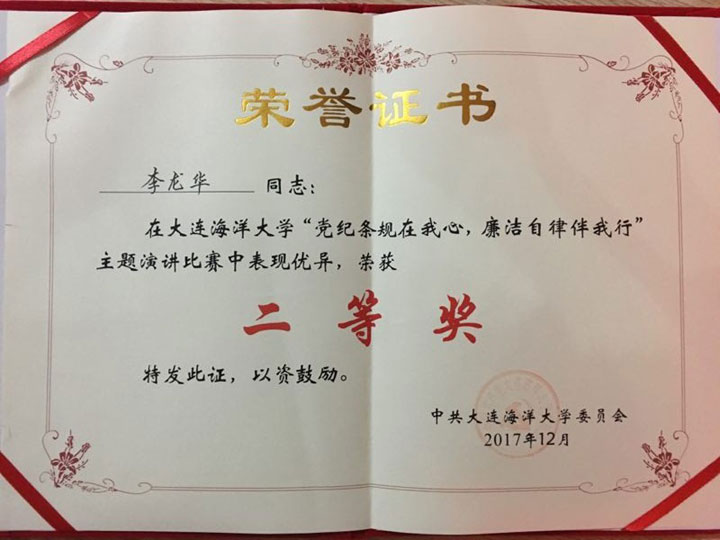 荣誉证书
李龙华 同志：
在大连海洋大学“党纪条规在我心，廉洁自律伴我行”
主题演讲比赛中表现优异，荣获
二等奖
特发此证，以资鼓励。
中共大连海洋大学委员会
2017年12月